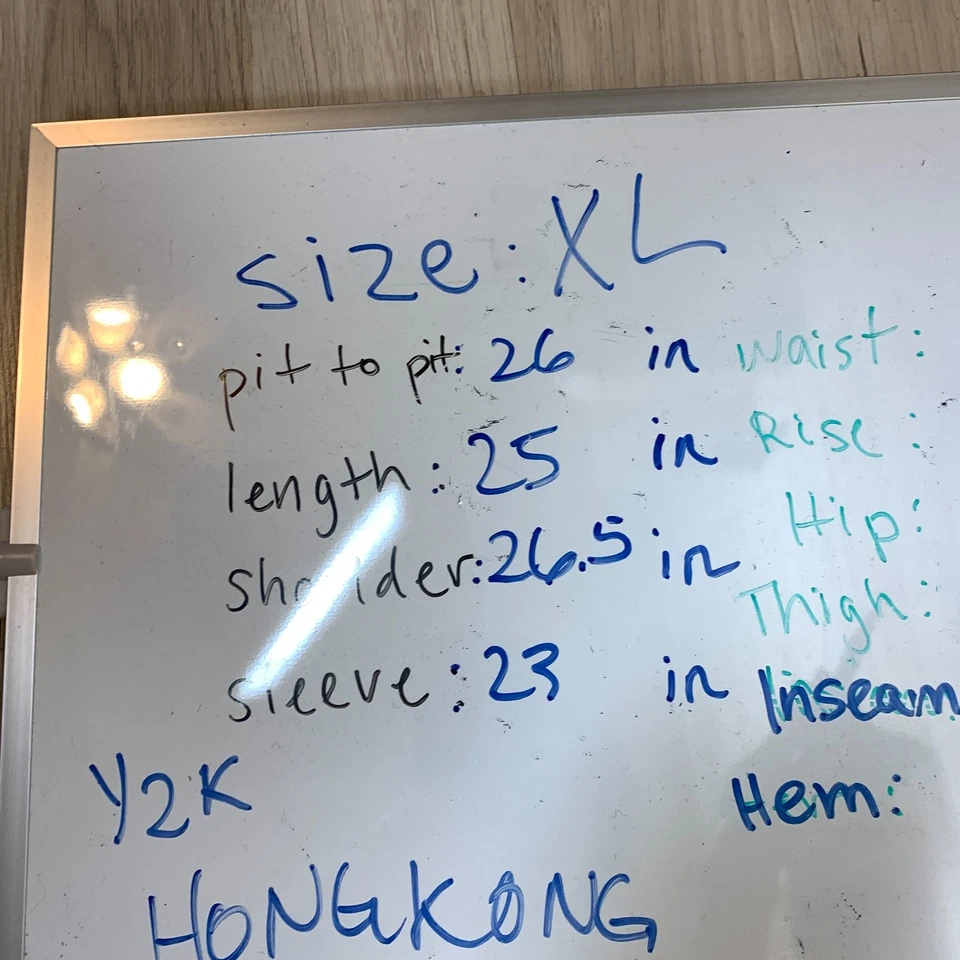 size: XL
pit to pit: 26 in
length: 25 in
shoulder: 26.5 in
sleeve: 23 in
Y2K
HONGKONG
Waist:
Rise:
Hip:
Thigh:
Inseam
Hem: